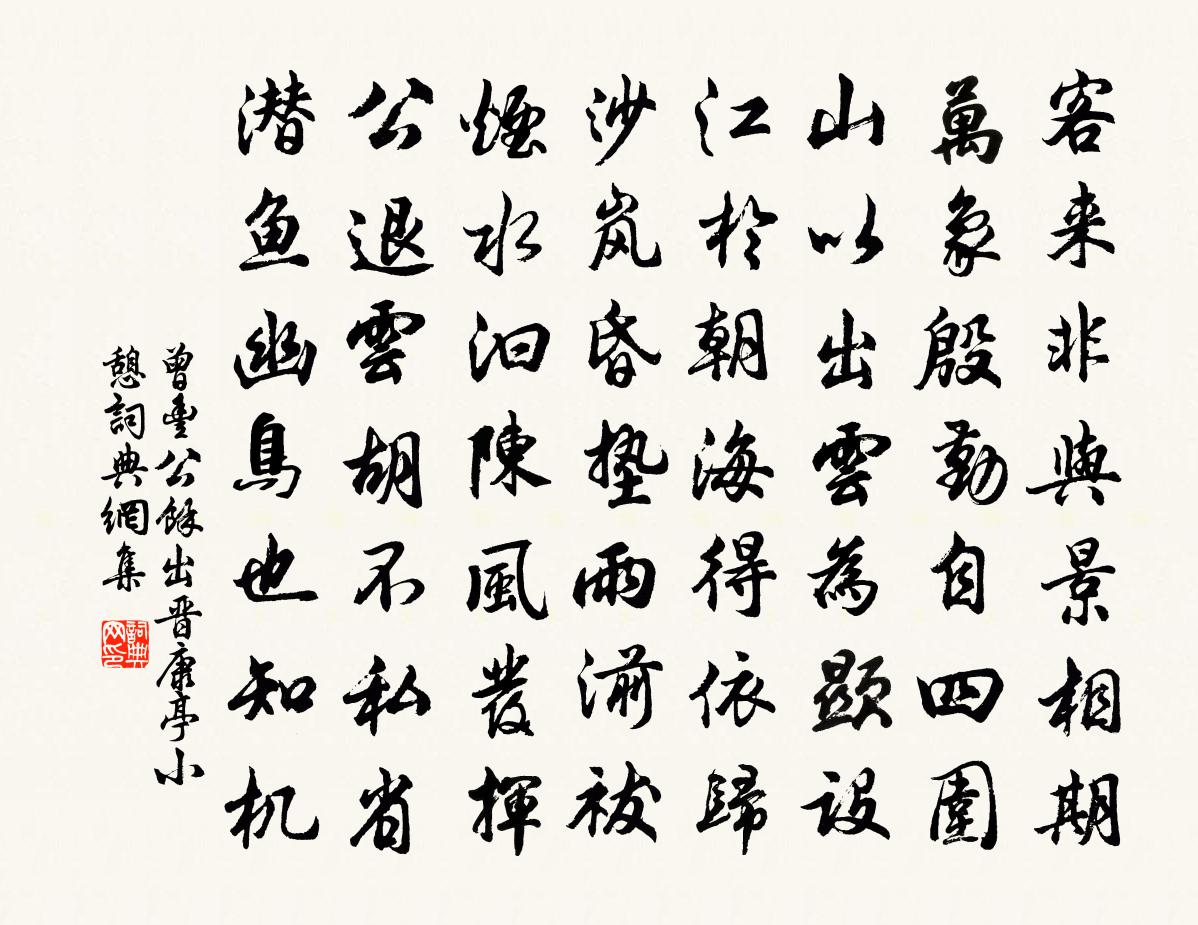 客来非與景相期
萬象殷勤自四圍
山以出雲為顯設
江於朝海得依歸
沙岚昏墊雨湔祓
煙水汩陳風發揮
公退雲胡不私省
潜鱼幽鳥也知机
曾豊公餘出晋康亭小
憩詞典網集
詞典网印